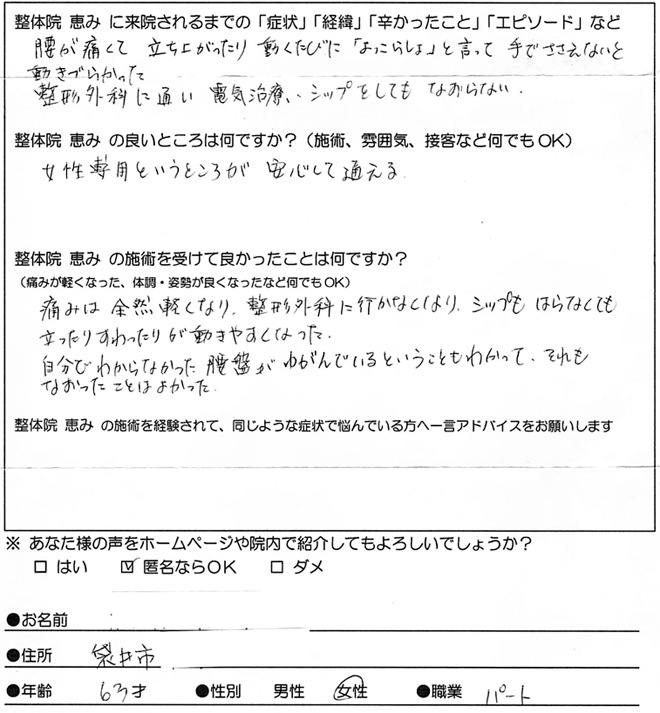 整体院 恵み に来院されるまでの「症状」「経緯」「辛かったこと」「エピソード」など
腰が痛くて 立ち上がったり 動くたびに「よっこらしょ」と言って 手でささえないと
動きづらかった
整形外科に通い 電気治療、シップをしても なおらない.
整体院 恵み の良いところは何ですか？（施術、雰囲気、接客など何でもOK）
女性専用というところが 安心して通える.
整体院 恵み の施術を受けて良かったことは何ですか？
（痛みが軽くなった、体調・姿勢が良くなったなど何でもOK）
痛みは 全然軽くなり、整形外科に行かなくなり、シップも はらなくても
立ったりすわったりが動きやすくなった.
自分でわからなかった 腰盤が ゆがんでいるということもわかって、それも
なおったことはよかった.
整体院 恵み の施術を経験されて、同じような症状で悩んでいる方へ一言アドバイスをお願いします
※ あなた様の声をホームページや院内で紹介してもよろしいでしょうか？
□ はい ☑ 匿名ならOK □ ダメ
●お名前
●住所 袋井市
●年齢 63才 ●性別 男性 女性 ●職業 パート